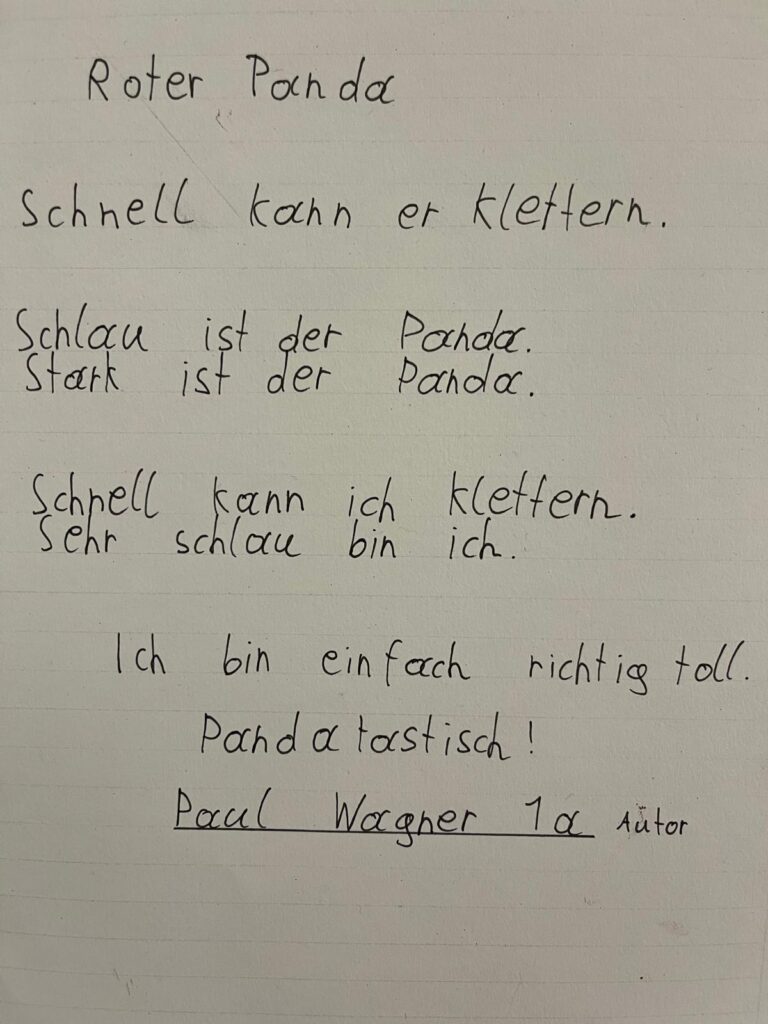 Roter Panda
Schnell kann er klettern.
Schlau ist der Panda.
Stark ist der Panda.
Schnell kann ich klettern.
Sehr schlau bin ich.
Ich bin einfach richtig toll.
Pandatastisch!
Paul Wagner 1a Autor